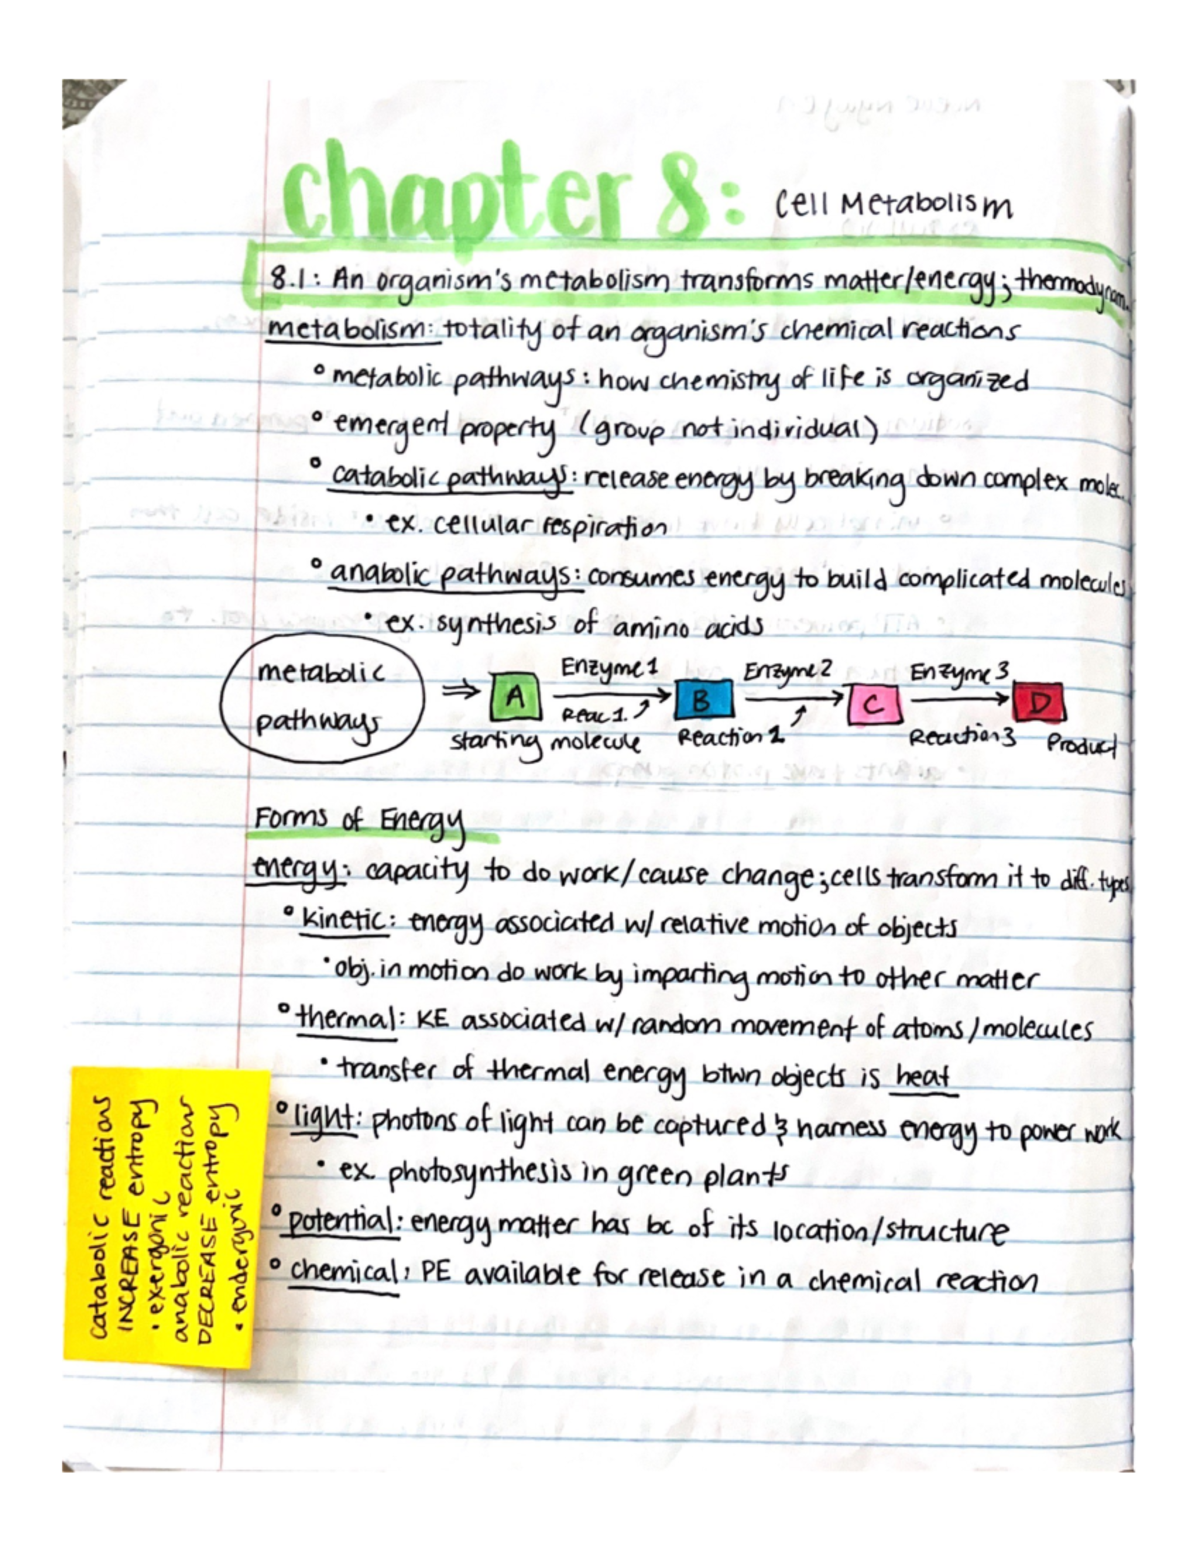 chapter 8: Cell Metabolism
8.1: An organism's metabolism transforms matter/energy; thermodynam.
metabolism: totality of an organism's chemical reactions
° metabolic pathways: how chemistry of life is organized
° emergent property (group not individual)
° catabolic pathways: release energy by breaking down complex molec.
• ex. cellular respiration
° anabolic pathways: consumes energy to build complicated molecules
• ex. synthesis of amino acids
metabolic
pathways
⇒ A Enzyme 1 B Enzyme 2 C Enzyme 3 D
Reac 1. Reaction 2 Reaction 3
starting molecule Product
Forms of Energy
energy: capacity to do work/cause change; cells transform it to diff. types
° kinetic: energy associated w/ relative motion of objects
• obj. in motion do work by imparting motion to other matter
° thermal: KE associated w/ random movement of atoms/molecules
• transfer of thermal energy btwn objects is heat
° light: photons of light can be captured & harness energy to power work
• ex. photosynthesis in green plants
° potential: energy matter has bc of its location/structure
° chemical: PE available for release in a chemical reaction
catabolic reactions
INCREASE entropy
• exergonic
anabolic reactions
DECREASE entropy
• endergonic